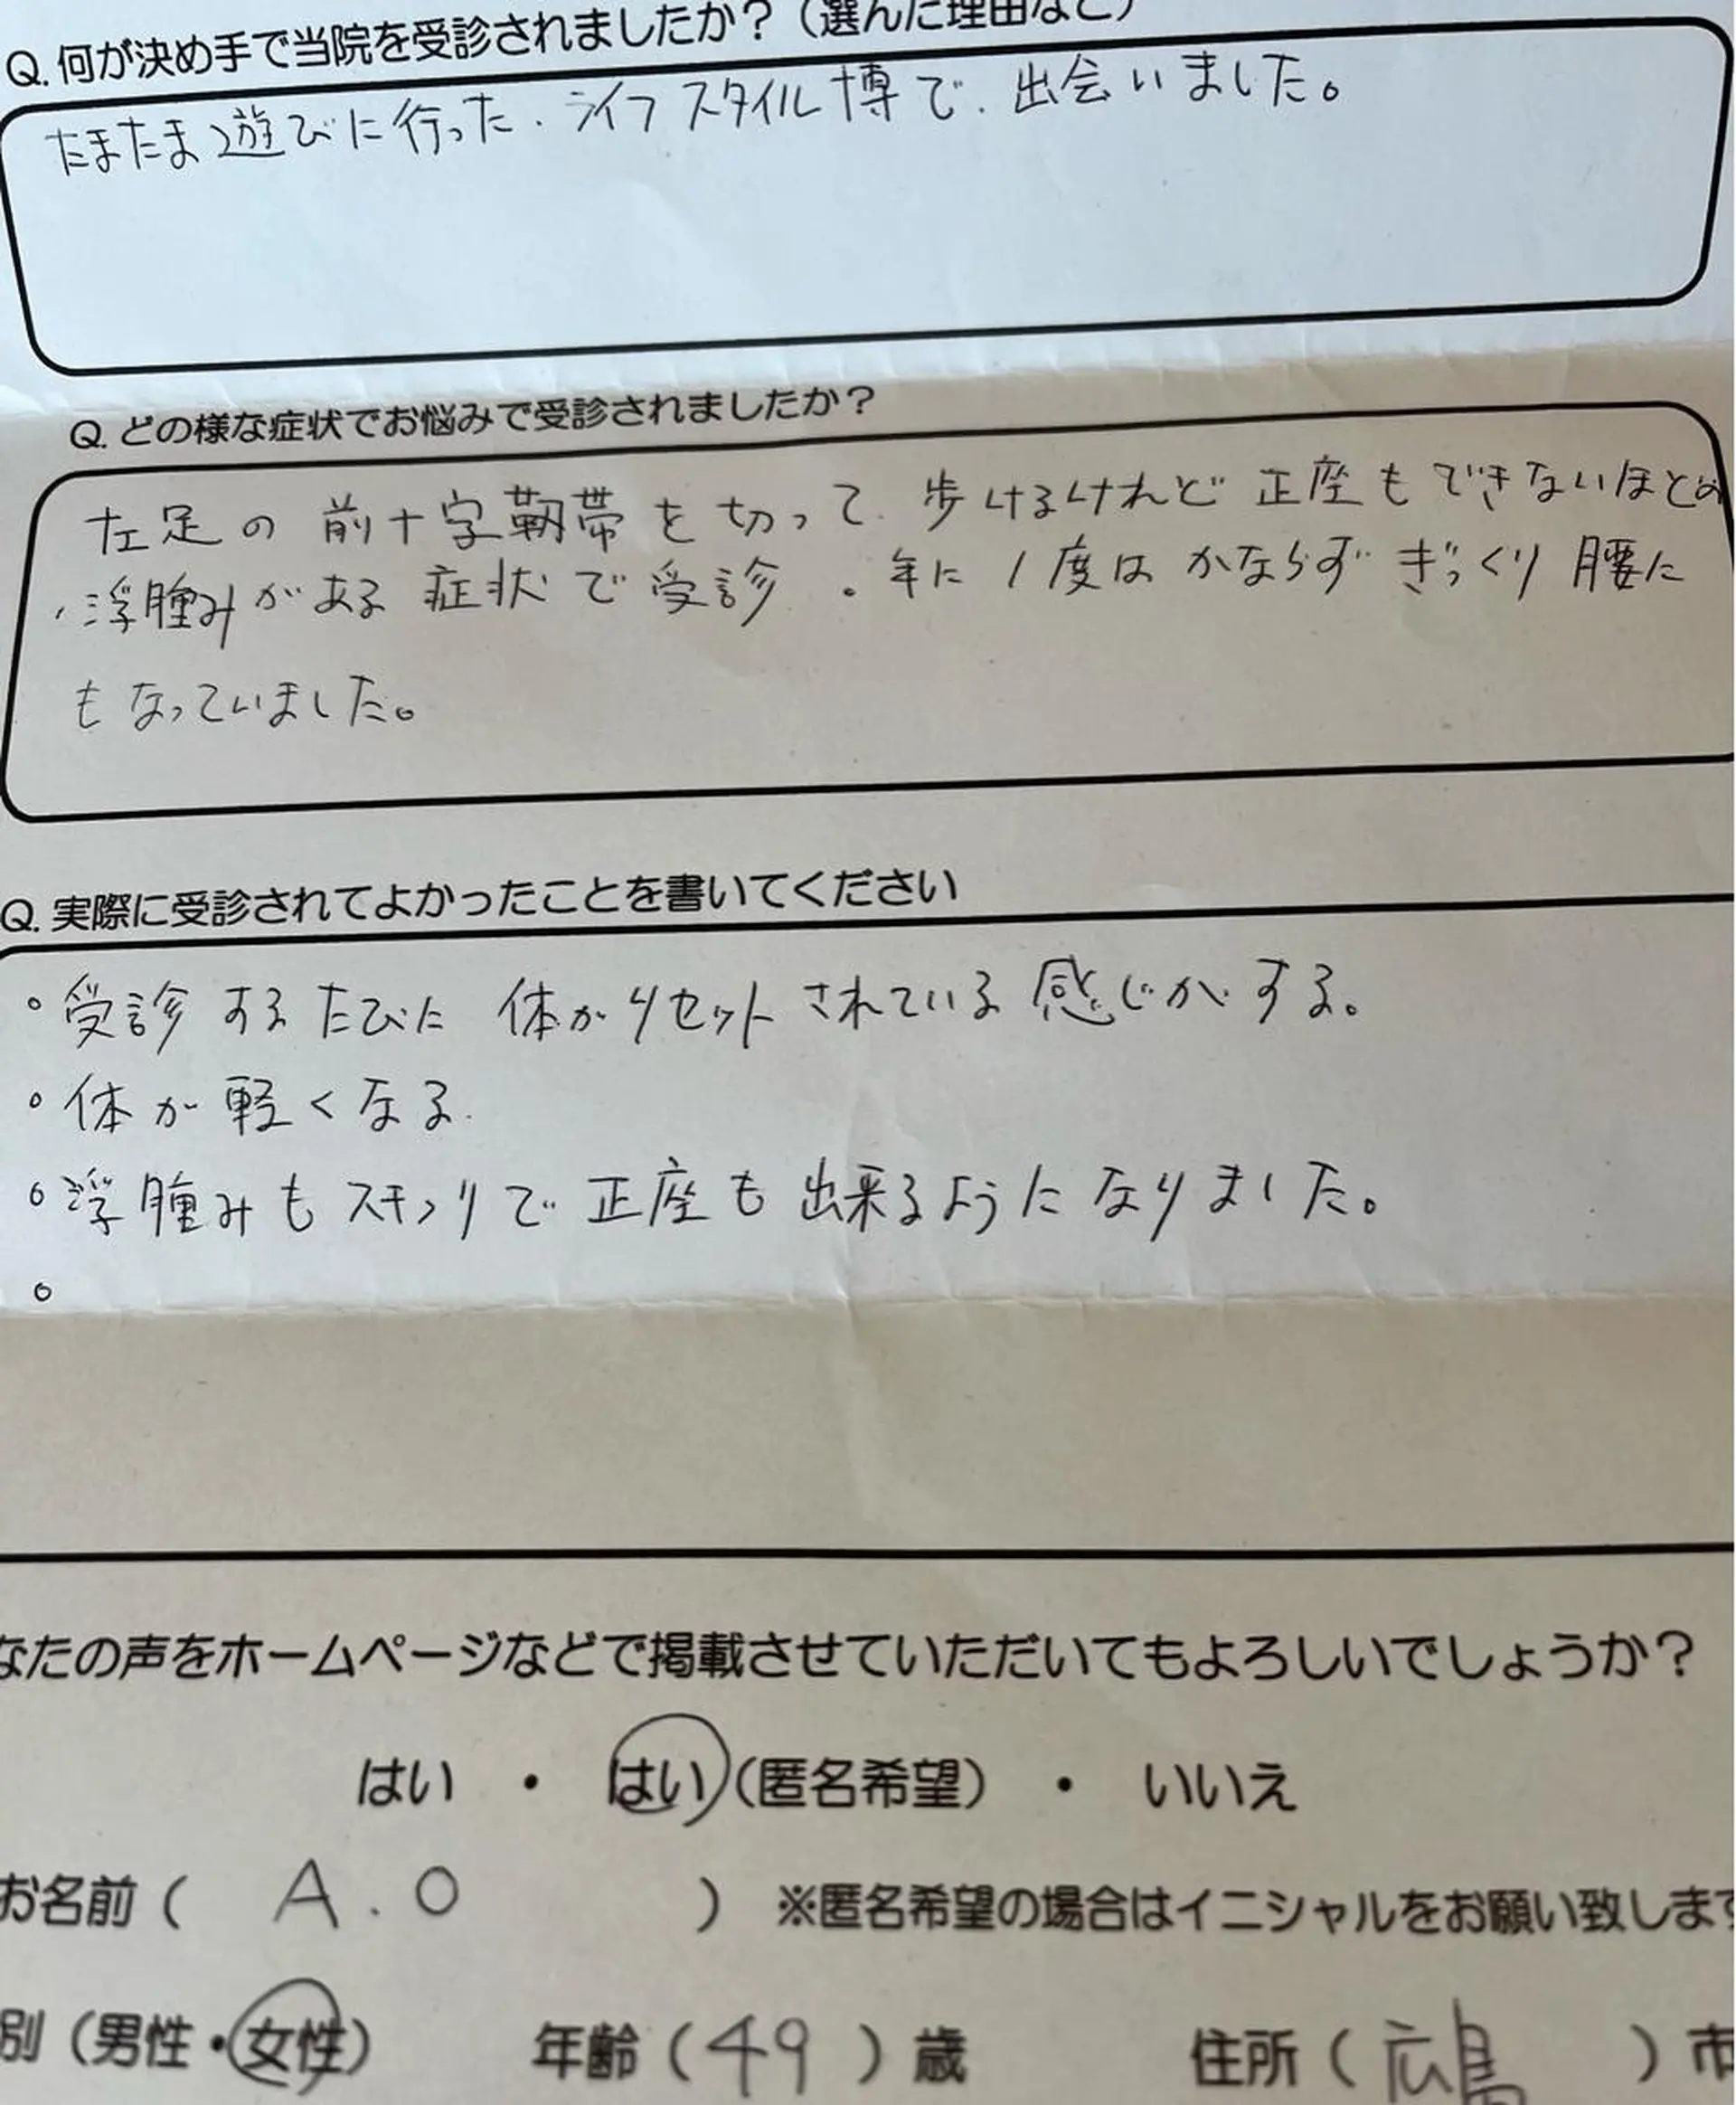 Q. 何が決め手で当院を受診されましたか？（選んだ理由など）
たまたま遊びに行った、ライフスタイル博で、出会いました。
Q. どの様な症状でお悩みで受診されましたか？
左足の前十字靭帯を切って、歩けるけれど正座もできないほどの
浮腫みがある症状で受診。年に1度はかならずぎっくり腰に
もなっていました。
Q. 実際に受診されてよかったことを書いてください
○受診するたびに体がリセットされている感じがする。
○体が軽くなる。
○浮腫みもスキッリで正座も出来るようになりました。
○
なたの声をホームページなどで掲載させていただいてもよろしいでしょうか？
はい ・ はい（匿名希望） ・ いいえ
お名前（ A.O ） ※匿名希望の場合はイニシャルをお願い致します
別（男性・女性） 年齢（49）歳 住所（広島）市